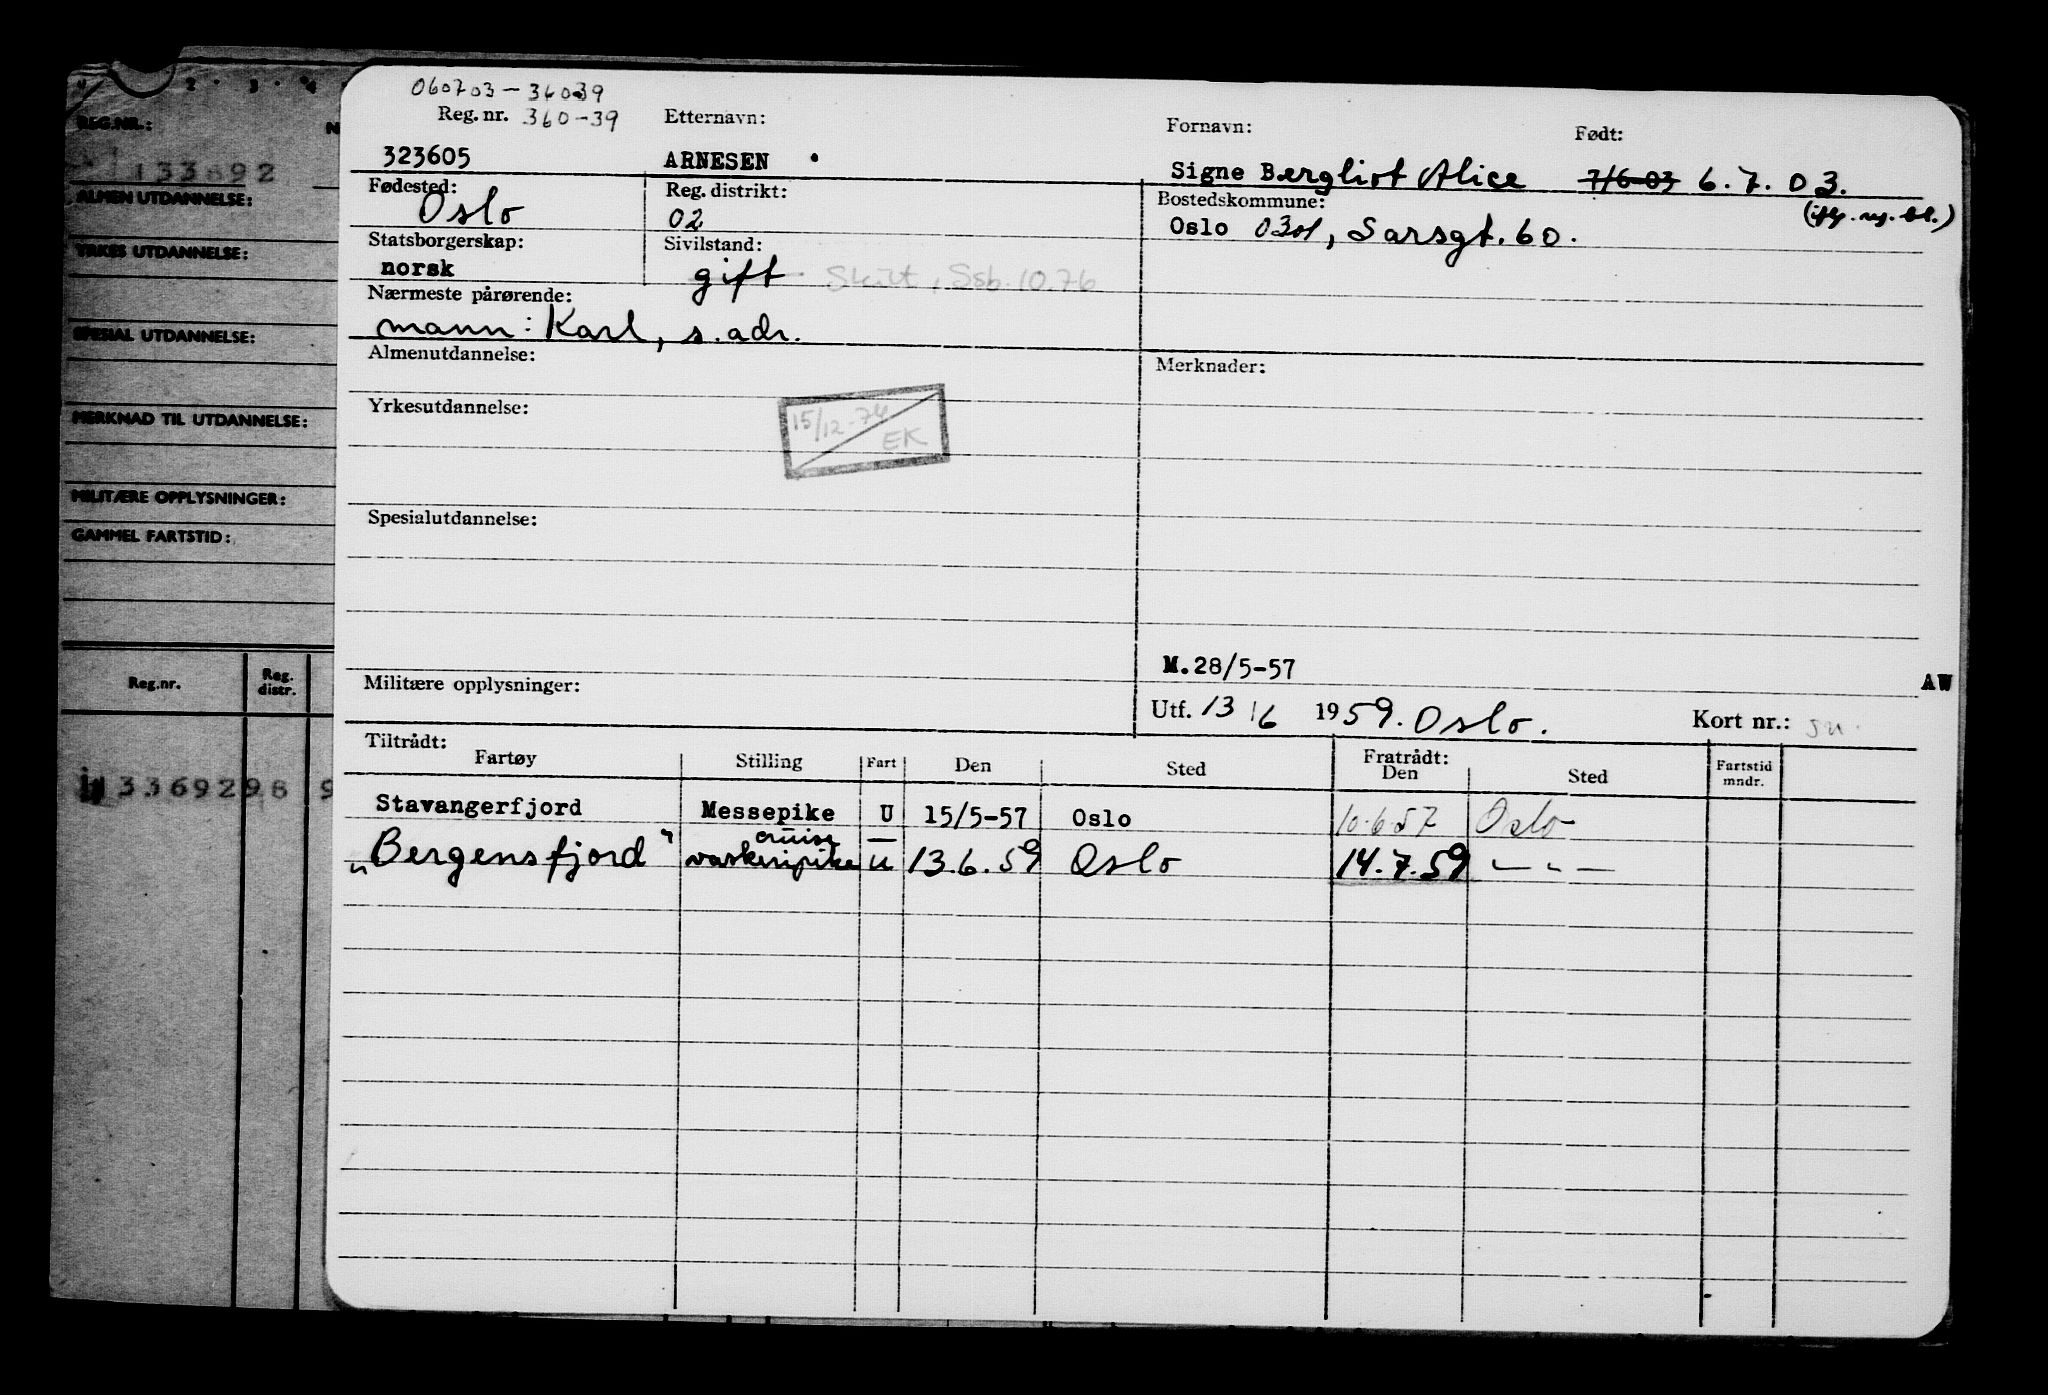 060703-36039
Reg. nr. 360-39 Etternavn: Fornavn: Født:
323605 ARNESEN Signe Bergliot Alice 7/6-03 6.7.03.
Fødested: Reg. distrikt: Bostedskommune:
Oslo 02 Oslo 0301, Sarsgt. 60.
Statsborgerskap: Sivilstand:
norsk gift Skilt, Ssb. 10.76
Nærmeste pårørende:
mann: Karl, s. adr.
Almenutdannelse: Merknader:
Yrkesutdannelse:
15/12-74
EK
Spesialutdannelse:
M.28/5-57
AW
Militære opplysninger: Utf. 13/6 1959. Oslo. Kort nr.:
Tiltrådt: Fratrådt:
Fartøy Stilling Fart Den Sted Den Sted Fartstid mndr.
Stavangerfjord Messepike U 15/5-57 Oslo 10.6.57 Oslo
cruise —
"Bergensfjord" vaskeripike U 13.6.59 Oslo 14.7.59 — - —
2 · 3 · 4
REG.NR.:
133692
ALMEN UTDANNELSE:
YRKES UTDANNELSE:
SPESIAL UTDANNELSE:
MERKNAD TIL UTDANNELSE:
MILITÆRE OPPLYSNINGER:
GAMMEL FARTSTID:
Reg.nr. Reg. distr.
13369298 9